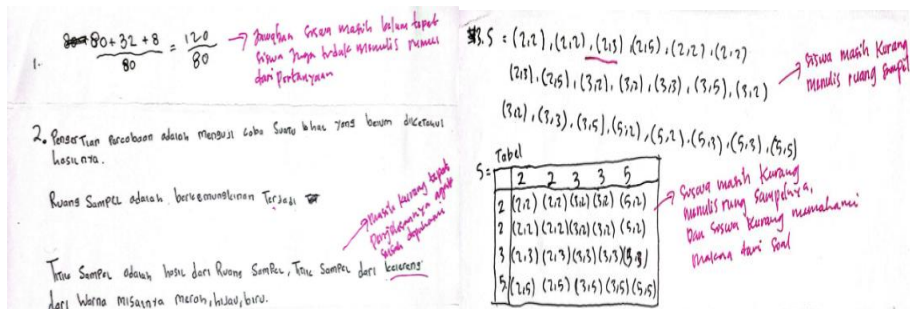 1. 80+32+8 / 80 = 120 / 80
Jawaban siswa masih belum tepat
siswa juga tidak menulis rumus
dari pertanyaan
2. Pengertian Percobaan adalah menguji coba suatu hal yang belum diketahui
hasilnya.
Ruang Sampel adalah berkemungkinan Terjadi
masih kurang tepat
penjelasannya agak
susah dipahami
Titik Sampel adalah hasil dari Ruang Sampel, Titik Sampel dari kelereng
dari Warna misalnya merah, hijau, biru.
3. S = (2,2), (2,2), (2,3), (2,5), (2,2), (2,2)
(2,3), (2,5), (3,2), (3,2), (3,3), (3,5), (3,2)
(3,2), (3,3), (3,5), (5,2), (5,2), (5,3), (5,3), (5,5)
siswa masih kurang
menulis ruang sampel
Tabel
S=
2 2 3 3 5
2 (2,2) (2,2) (3,2) (3,2) (5,2)
2 (2,2) (2,2) (3,2) (3,2) (5,2)
3 (2,3) (2,3) (3,3) (3,3) (5,3)
5 (2,5) (2,5) (3,5) (3,5) (5,5)
siswa masih kurang
menulis ruang sampelnya,
Dan siswa kurang memahami
makna dari soal